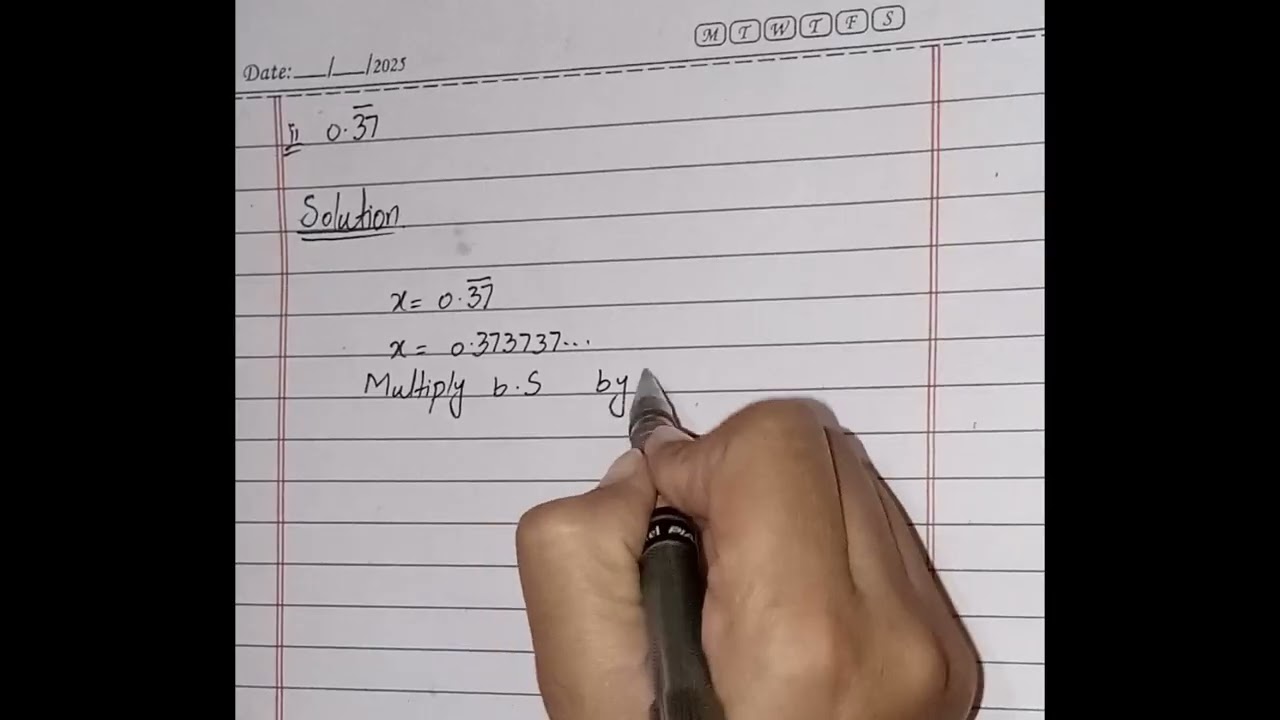 M T W T F S
Date: __/__/2025
ii 0.3̅7̅
Solution
x = 0.3̅7̅
x = 0.373737...
Multiply b.S by